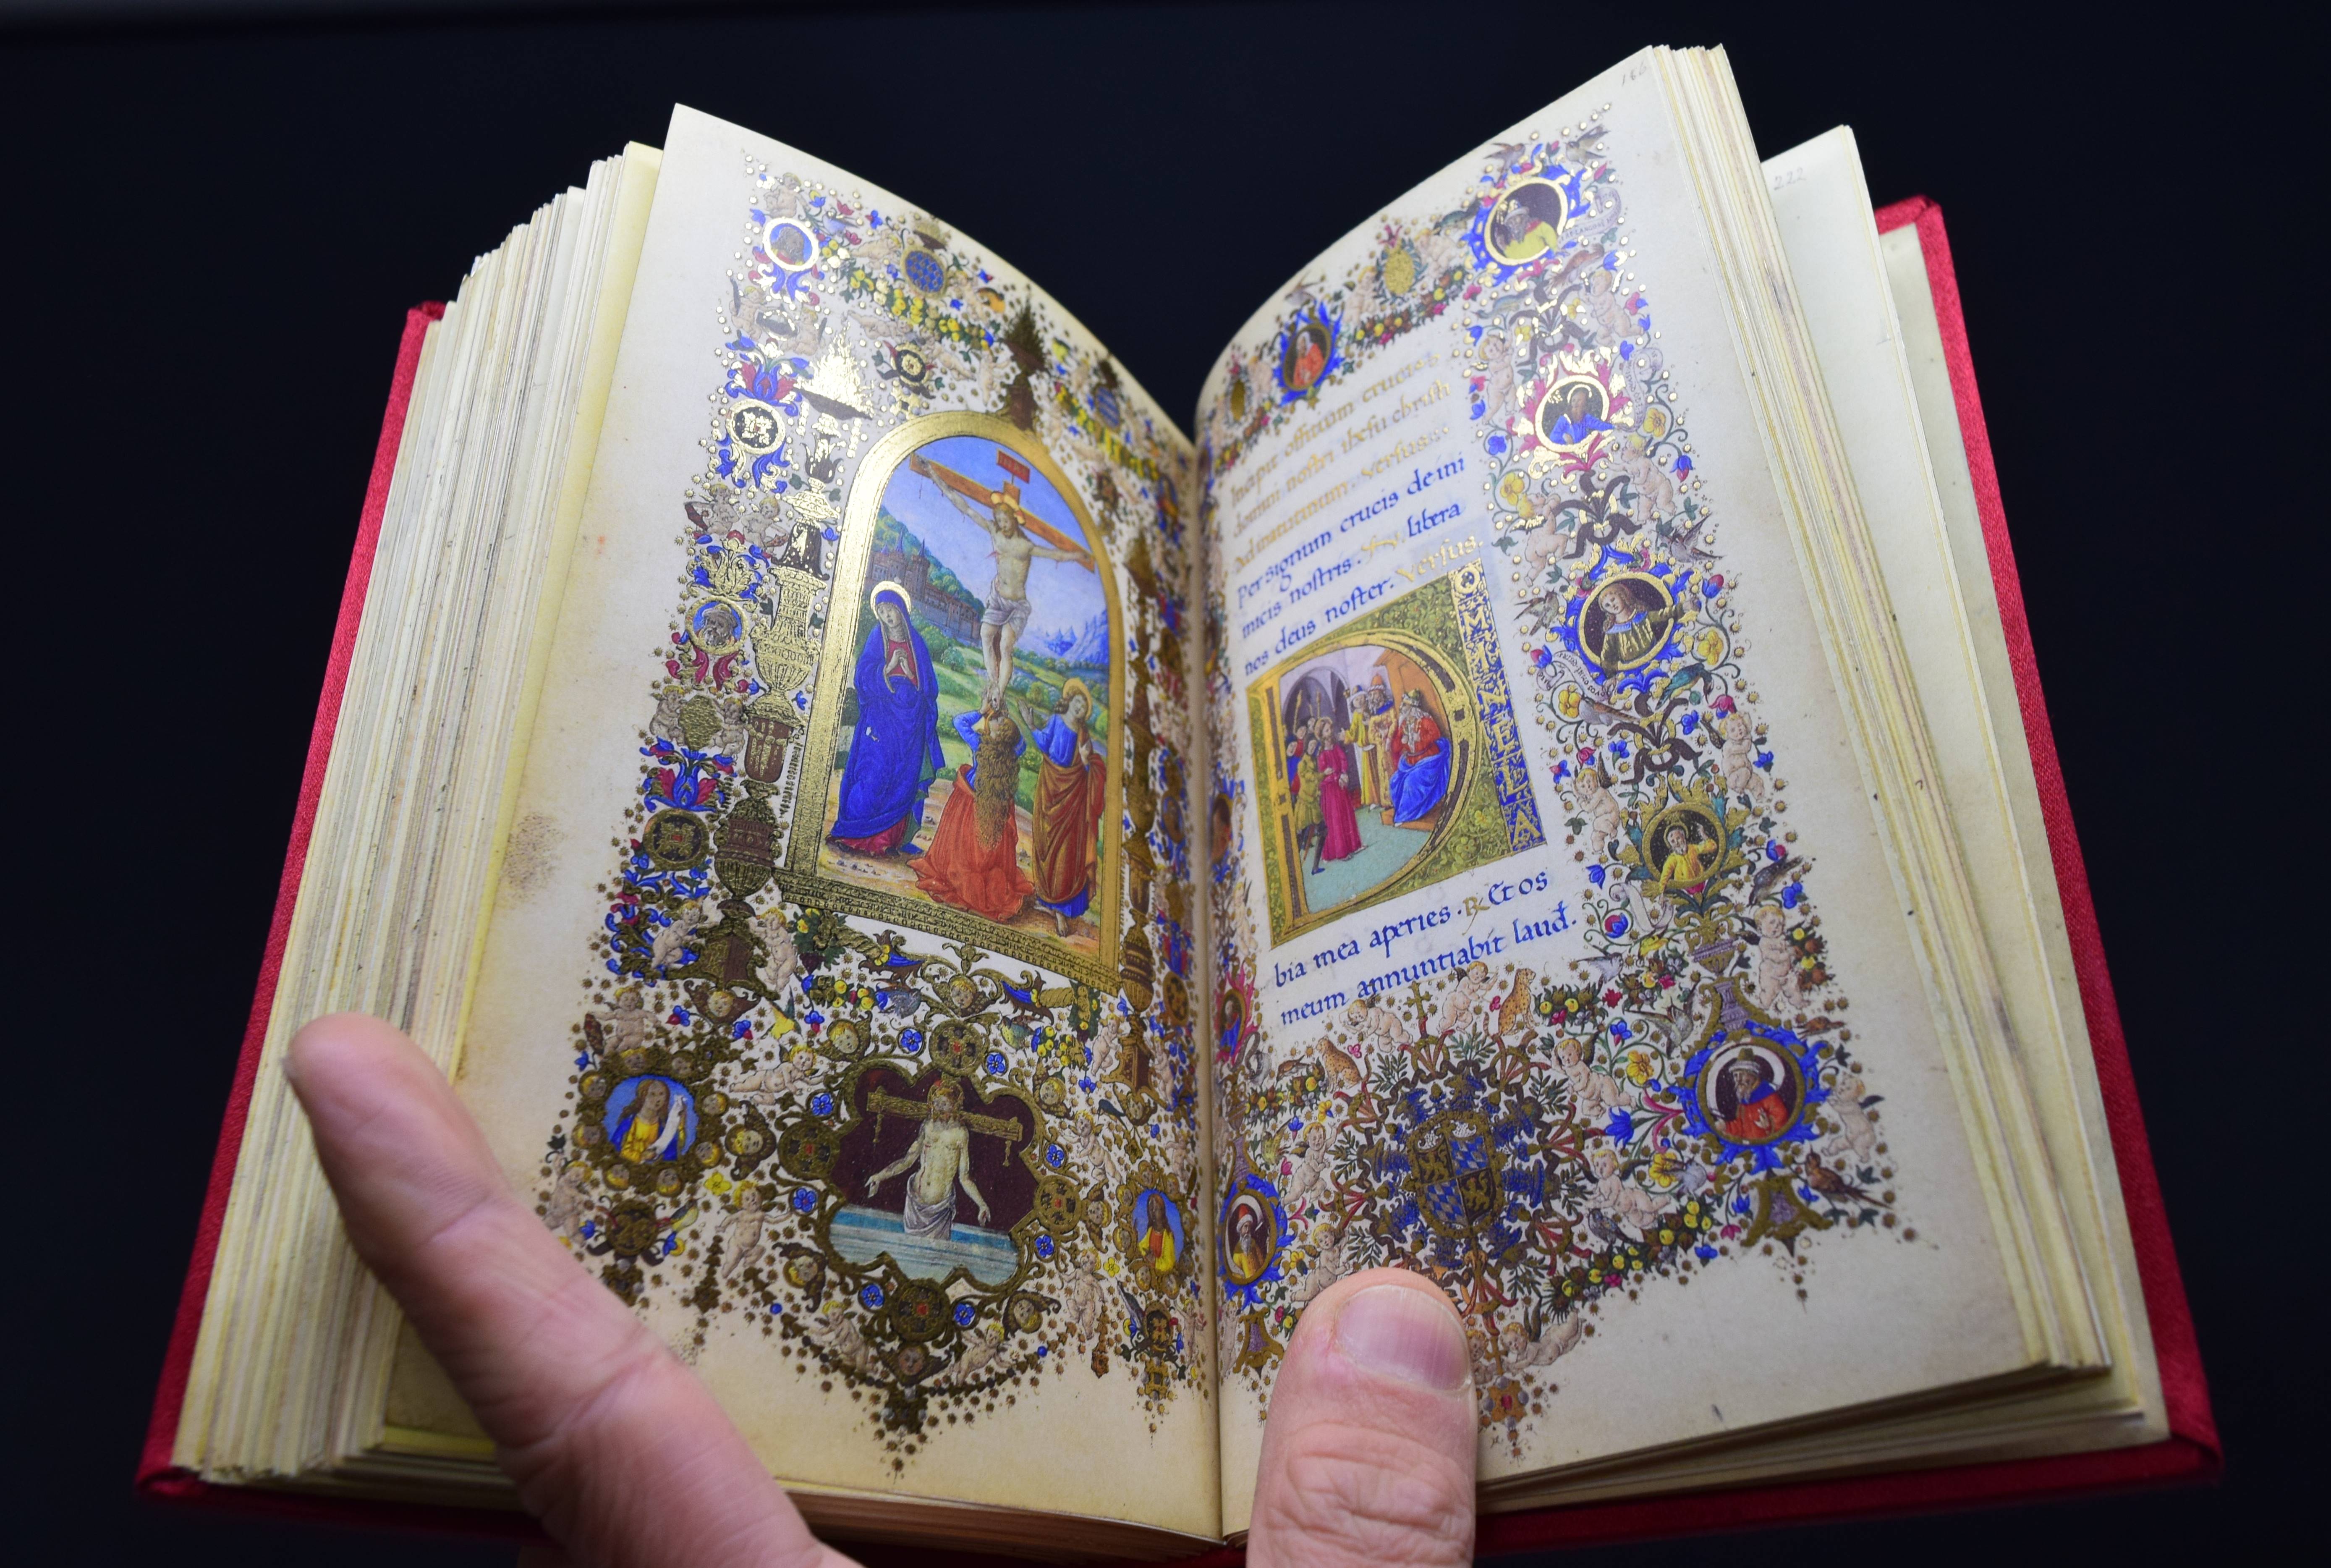 186
222
Incipit offitium crucis
domini nostri ihesu christi
ad matutinum. Versus.
Per signum crucis de ini
micis nostris. libera
nos deus noster. Versus.
D
OMINE LA
bia mea aperies. ℞ Et os
meum annuntiabit laud.